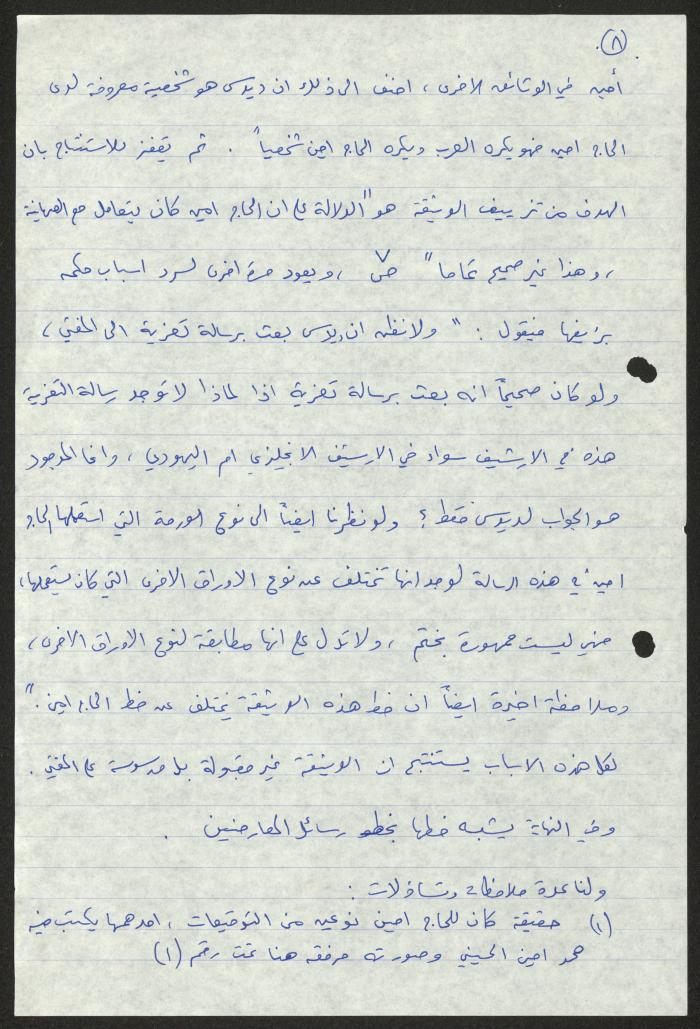 (٨)
أمين في الوثائق الاخرى ، اضف الى ذلك ان ديدس هو شخصية معروفة لدى
الحاج امين فهو يكره العرب ويكره الحاج امين شخصياً . ثم يقفز للاستنتاج بان
الهدف من تزييف الوثيقة هو "الدلالة على ان الحاج امين كان يتعامل مع الصهاينة
، وهذا غير صحيح تماما" ص٧ ، ويعود مرة اخرى لسرد اسباب حكمه
بزيفها فيقول : " ولا نظن ان ديدس بعث برسالة تعزية الى المفتي ،
ولو كان صحيحاً انه بعث برسالة تعزية اذا لماذا لا توجد رسالة التعزية
هذه في الارشيف سواء في الارشيف الانجليزي ام اليهودي ، وانما الموجود
هو الجواب لديدس فقط ؟ ولو نظرنا ايضاً الى نوع الورقة التي استعملها الحاج
امين في هذه الرسالة لوجد انها تختلف عن نوع الاوراق الاخرى التي كان يستعملها ،
فهي ليست ممهورة بختم ، ولا تدل على انها مطابقة لنوع الاوراق الاخرى ،
وملاحظة اخيرة ايضاً ان خط هذه الوثيقة يختلف عن خط الحاج امين . "
لكل هذه الاسباب يستنتج ان الوثيقة غير مقبولة بل مدسوسة على المفتي .
وفي النهاية يشبه خطها بخط رسائل المعارضين .
ولنا عدة ملاحظات وتساؤلات :
(١) حقيقة كان للحاج امين نوعين من التوقيعات ، احدهما يكتب فيه
محمد امين الحسيني وصورته مرفقه هنا تحت رقم (١)